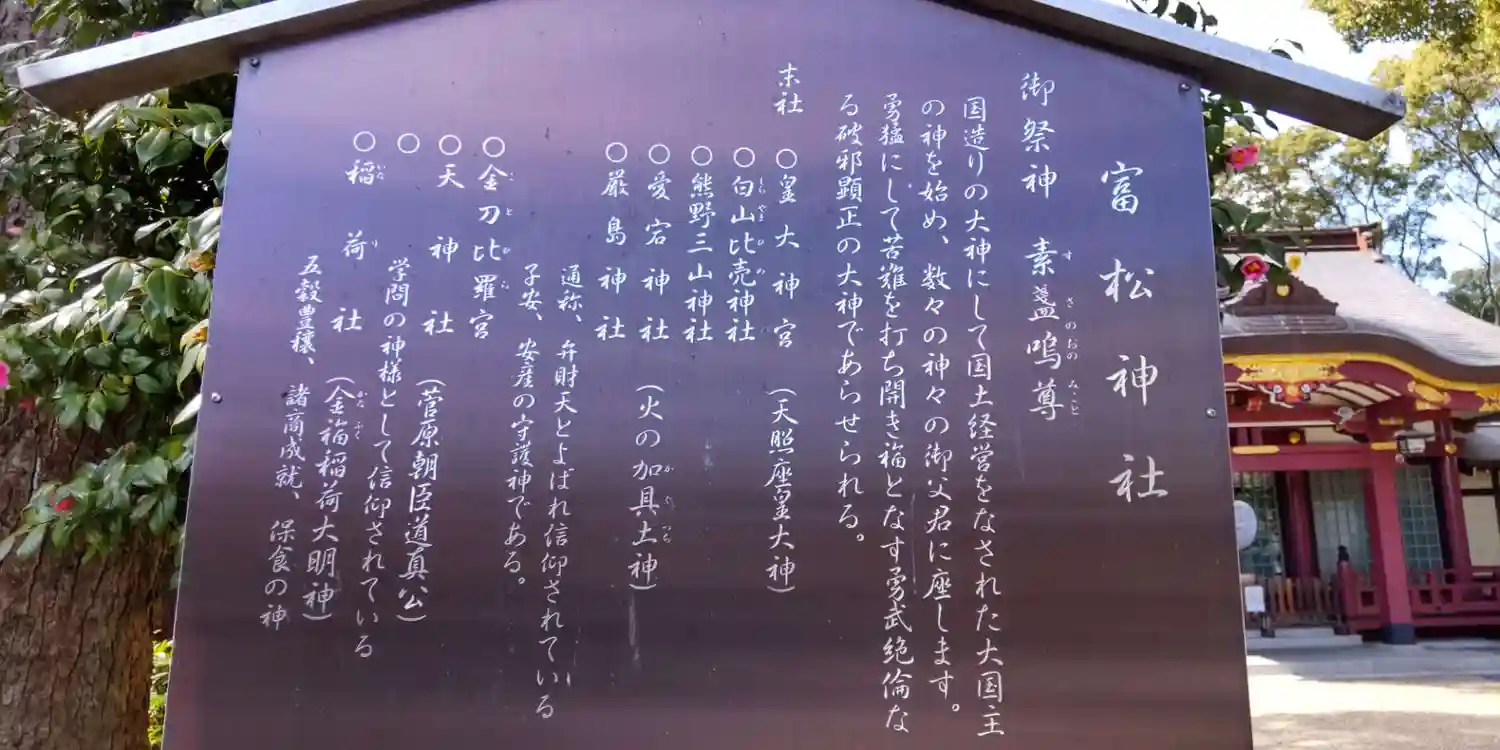 富松神社
御祭神 素盞嗚尊
国造りの大神にして国土経営をなされた大国主
の神を始め、数々の神々の御父君に座します。
勇猛にして苦難を打ち開き福となす勇武絶倫な
る破邪顕正の大神であらせられる。
末社 〇皇大神宮 (天照座皇大神)
〇白山比売神社
〇熊野三山神社
〇愛宕神社 (火の加具土神)
〇厳島神社
通称、弁財天とよばれ信仰されている
子安、安産の守護神である。
〇金刀比羅宮
〇天神社 (菅原朝臣道真公)
〇 学問の神様として信仰されている
〇稲荷社 (金福稲荷大明神)
五穀豊穣、諸商成就、保食の神